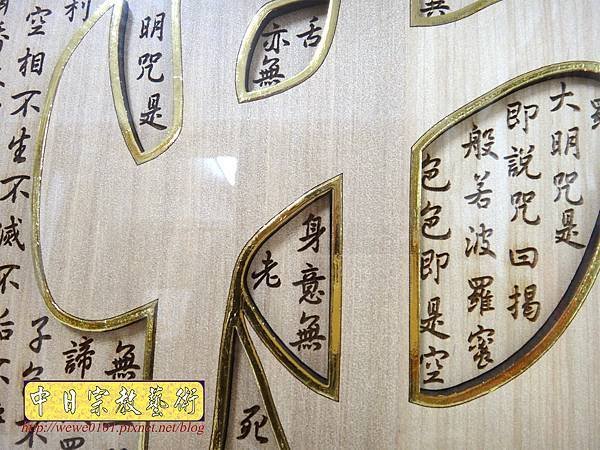 羅
大明咒是
即說咒曰揭
般若波羅蜜
色色即是空
舌
亦無
身意無
老
死
利
明咒是
空相不生不滅不
子
無
諦
中日宗教藝術
http://wewe0101.pixnet.net/blog